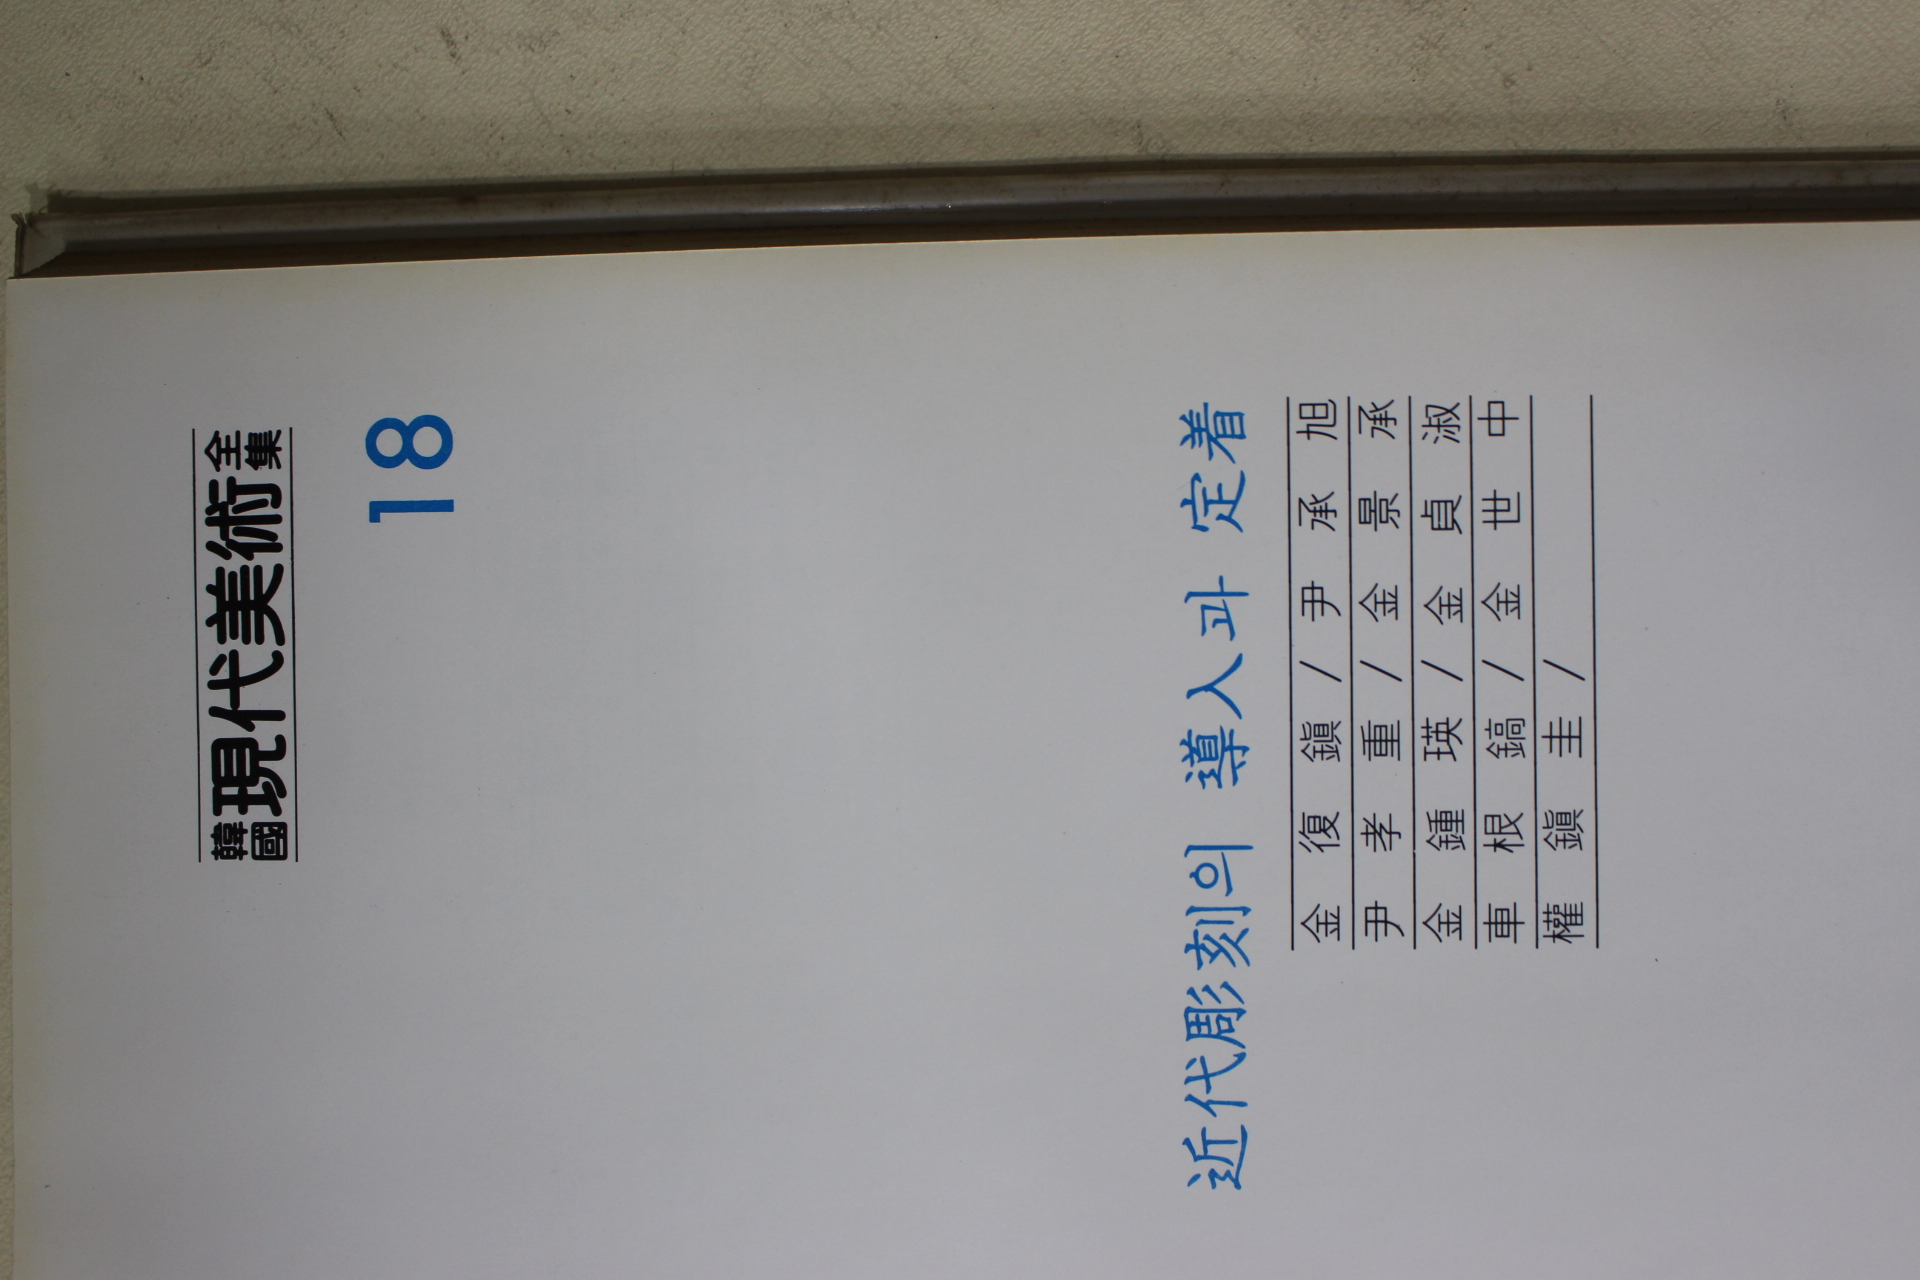 韓國 現代美術 全集
18
近代彫刻의 導入과 定着
金復鎭/尹承旭
尹孝重/金景承
金鍾瑛/金貞淑
車根鎬/金世中
權鎭圭/